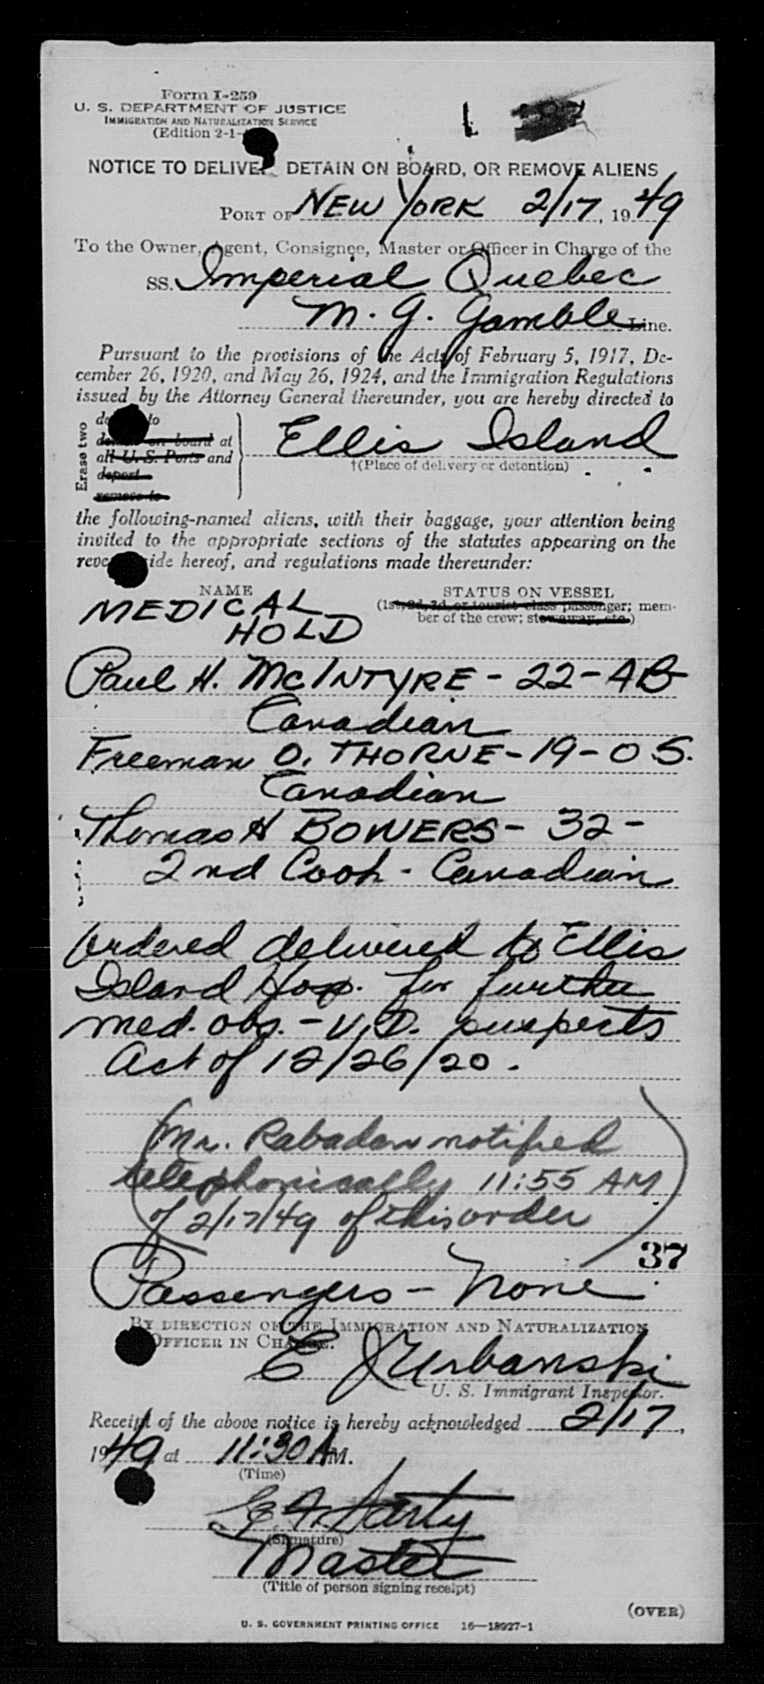 Form I-259
U. S. DEPARTMENT OF JUSTICE
IMMIGRATION AND NATURALIZATION SERVICE
(Edition 2-1-
NOTICE TO DELIVER, DETAIN ON BOARD, OR REMOVE ALIENS
PORT OF NEW YORK 2/17, 1949
To the Owner, Agent, Consignee, Master or Officer in Charge of the
SS. Imperial Quebec
M. G. Gamble Line.
Pursuant to the provisions of the Acts of February 5, 1917, De-
cember 26, 1920, and May 26, 1924, and the Immigration Regulations
issued by the Attorney General thereunder, you are hereby directed to
Erase two
to
detain on board at
all U. S. Ports and
deport
remove to
Ellis Island
†(Place of delivery or detention)
the following-named aliens, with their baggage, your attention being
invited to the appropriate sections of the statutes appearing on the
reverse side hereof, and regulations made thereunder:
NAME STATUS ON VESSEL
(1st, 2d, 3d, or tourist class passenger; mem-
ber of the crew; stowaway, etc.)
MEDICAL
HOLD
Paul H. McINTYRE - 22 - AB
Canadian
Freeman O. THORNE - 19 - O S.
Canadian
Thomas H BOWERS - 32 -
2nd Cook - Canadian
Ordered delivered to Ellis
Island Hosp. for further
med. obs. - V.D. suspects
Act of 12/26/20.
(Mr. Rabadan notified
telephonically 11:55 AM
of 2/17/49 of this order)
37
Passengers - None
BY DIRECTION OF THE IMMIGRATION AND NATURALIZATION
OFFICER IN CHARGE.
E J Urbanski
U. S. Immigrant Inspector.
Receipt of the above notice is hereby acknowledged 2/17,
1949 at 11:30 A M.
(Time)
(Signature)
Master
(Title of person signing receipt)
(OVER)
U. S. GOVERNMENT PRINTING OFFICE 16—18927-1